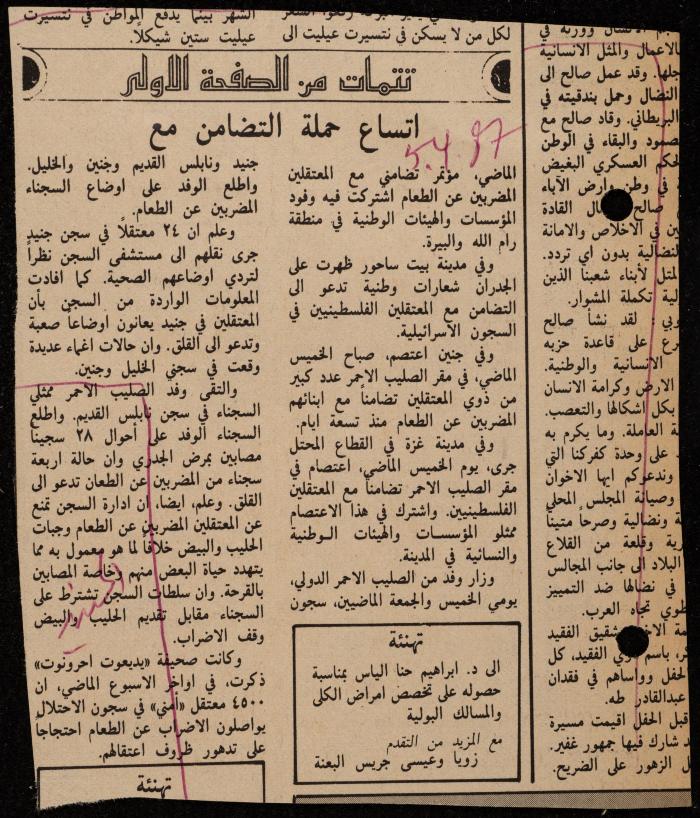 الشهر بينما يدفع المواطن في نتسيرت
عيليت ستين شيكلاً.
لكل من لا يسكن في نتسيرت عيليت الى
تتمات من الصفحة الاولى
اتساع حملة التضامن مع
5.4.87
الماضي، مؤتمر تضامني مع المعتقلين
المضربين عن الطعام اشتركت فيه وفود
المؤسسات والهيئات الوطنية في منطقة
رام الله والبيرة.
وفي مدينة بيت ساحور ظهرت على
الجدران شعارات وطنية تدعو الى
التضامن مع المعتقلين الفلسطينيين في
السجون الاسرائيلية.
وفي جنين اعتصم، صباح الخميس
الماضي، في مقر الصليب الاحمر عدد كبير
من ذوي المعتقلين تضامناً مع ابنائهم
المضربين عن الطعام منذ تسعة ايام.
وفي مدينة غزة في القطاع المحتل
جرى، يوم الخميس الماضي، اعتصام في
مقر الصليب الاحمر تضامناً مع المعتقلين
الفلسطينيين. واشترك في هذا الاعتصام
ممثلو المؤسسات والهيئات الوطنية
والنسائية في المدينة.
وزار وفد من الصليب الاحمر الدولي،
يومي الخميس والجمعة الماضيين، سجون
جنيد ونابلس القديم وجنين والخليل.
واطلع الوفد على اوضاع السجناء
المضربين عن الطعام.
وعلم ان ٢٤ معتقلاً في سجن جنيد
جرى نقلهم الى مستشفى السجن نظراً
لتردي اوضاعهم الصحية. كما افادت
المعلومات الواردة من السجن بأن
المعتقلين في جنيد يعانون اوضاعاً صعبة
وتدعو الى القلق. وان حالات اغماء عديدة
وقعت في سجني الخليل وجنين.
والتقى وفد الصليب الاحمر ممثلي
السجناء في سجن نابلس القديم. واطلع
السجناء الوفد على أحوال ٢٨ سجيناً
مصابين بمرض الجدري وان حالة اربعة
سجناء من المضربين عن الطعان تدعو الى
القلق. وعلم، ايضا، ان ادارة السجن تمنع
عن المعتقلين المضربين عن الطعام وجبات
الحليب والبيض خلافاً لما هو معمول به مما
يتهدد حياة البعض منهم وخاصة المصابين
بالقرحة. وان سلطات السجن تشترط على
السجناء مقابل تقديم الحليب والبيض
وقف الاضراب.
وكانت صحيفة «يديعوت احرونوت»
ذكرت، في اواخر الاسبوع الماضي، ان
٤٥٠٠ معتقل «أمني» في سجون الاحتلال
يواصلون الاضراب عن الطعام احتجاجاً
على تدهور ظروف اعتقالهم.
تهنئة
الى د. ابراهيم حنا الياس بمناسبة
حصوله على تخصص امراض الكلى
والمسالك البولية
مع المزيد من التقدم
زويا وعيسى جريس البعنة
تهنئة
بالاعمال والمثل الانسانية
جلها. وقد عمل صالح الى
النضال وحمل بندقيته في
البريطاني. وقاد صالح مع
صمود والبقاء في الوطن
لحكم العسكري البغيض
في وطن وارض الآباء
صالح القادة
ين في الاخلاص والامانة
لنضالية بدون اي تردد.
لمثل لأبناء شعبنا الذين
لية تكملة المشوار.
لقد نشأ صالح
على قاعدة حزبه
الانسانية والوطنية.
الارض وكرامة الانسان
بكل اشكالها والتعصب.
العاملة. وما يكرم به
على وحدة كفركنا التي
وندعوكم ايها الاخوان
وصيانة المجلس المحلي
ونضالية وصرحاً متيناً
رية وقلعة من القلاع
البلاد الى جانب المجالس
في نضالها ضد التمييز
تجاه العرب.
شقيق الفقيد
باسم ذوي الفقيد، كل
لحفل وواساهم في فقدان
عبدالقادر طه.
قبل الحفل اقيمت مسيرة
شارك فيها جمهور غفير.
الزهور على الضريح.